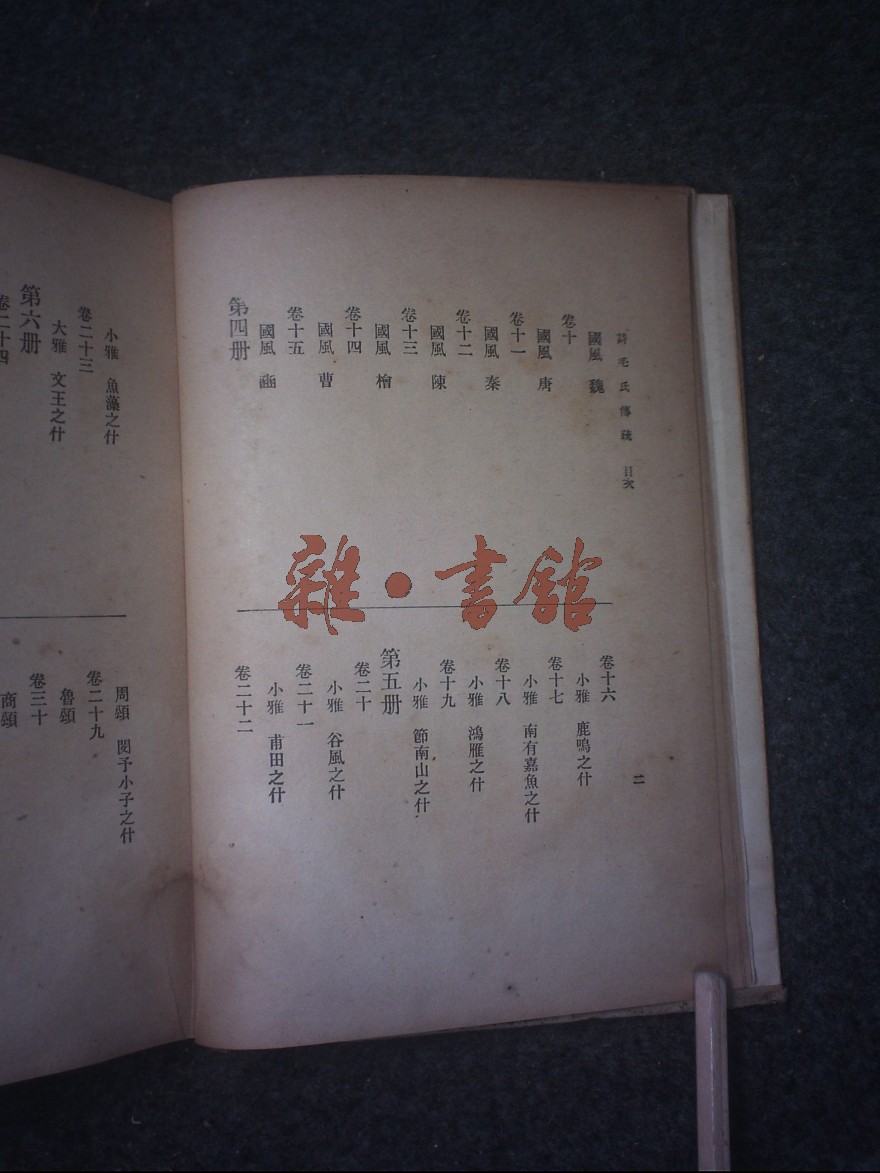 詩毛氏傳疏 目次
國風 魏
卷十
國風 唐
卷十一
國風 秦
卷十二
國風 陳
卷十三
國風 檜
卷十四
國風 曹
卷十五
國風 豳
第四册
卷十六
小雅 鹿鳴之什
卷十七
小雅 南有嘉魚之什
卷十八
小雅 鴻雁之什
卷十九
小雅 節南山之什
第五册
卷二十
小雅 谷風之什
卷二十一
小雅 甫田之什
卷二十二
二
小雅 魚藻之什
卷二十三
大雅 文王之什
第六册
卷二十四
周頌 閔予小子之什
卷二十九
魯頌
卷三十
商頌
雜·書館